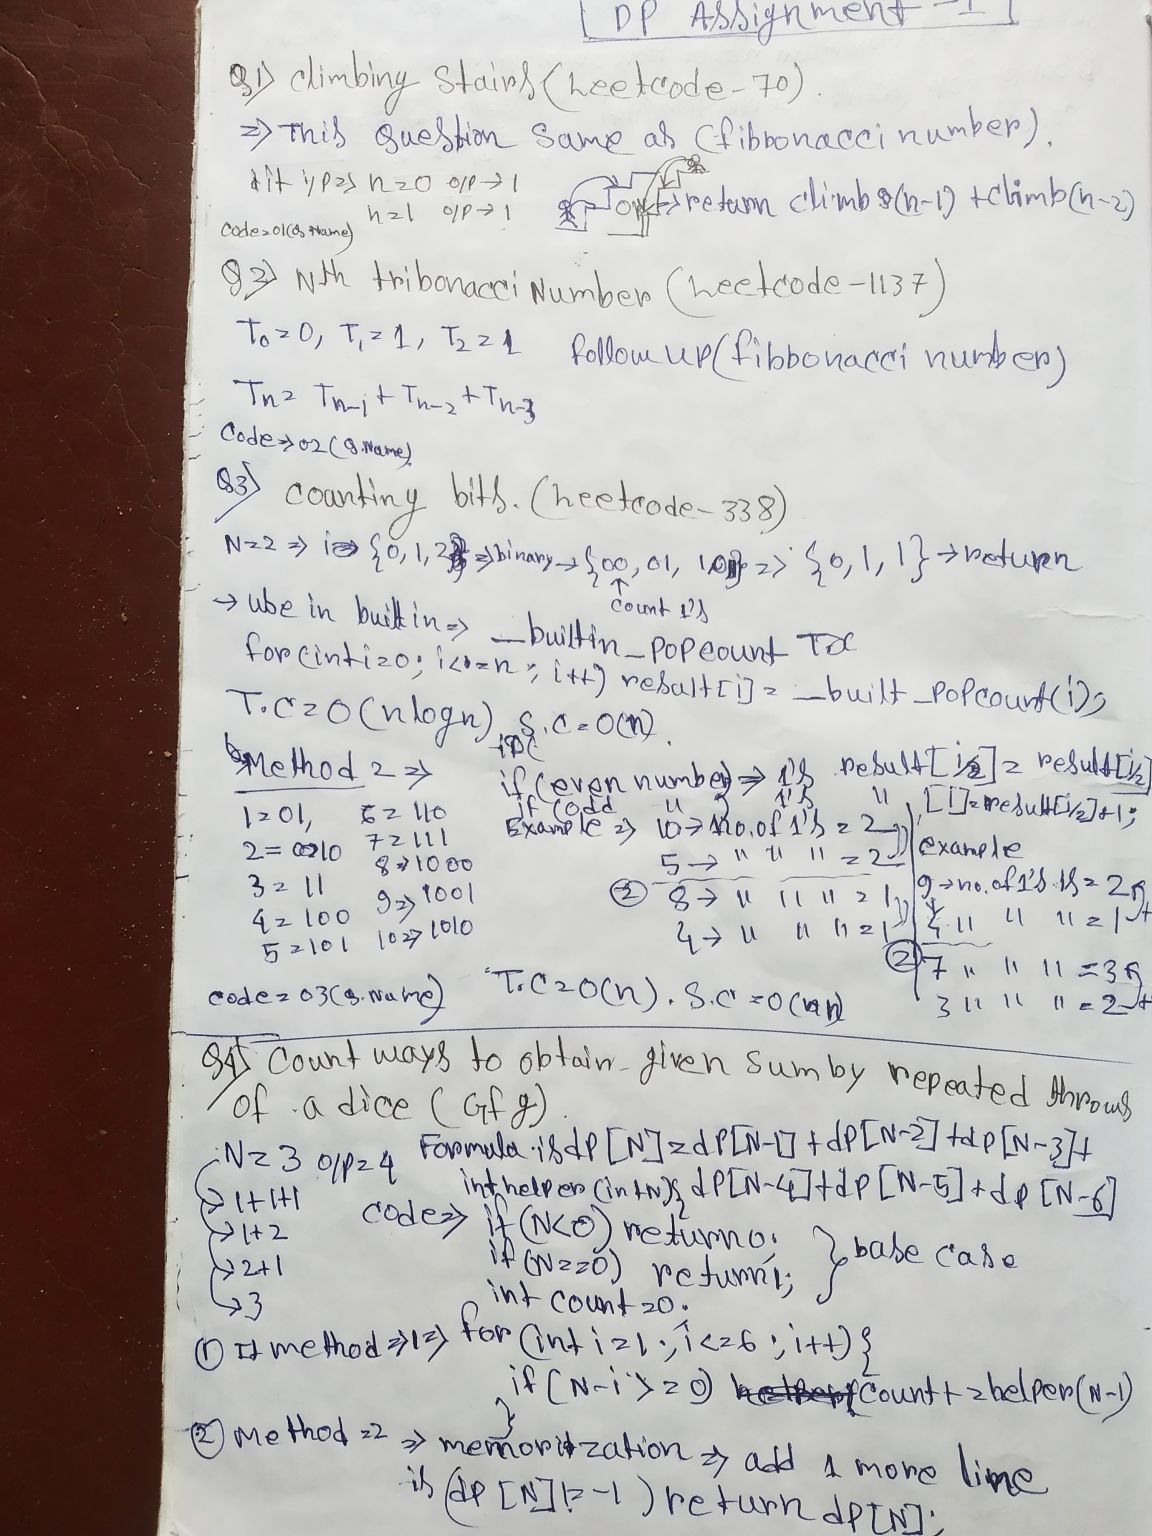 DP Assignment - 1
Q1) climbing Stairs (Leetcode-70).
=> This Question Same as (fibbonacci number).
n=0 o/p→1
n=1 o/p→1
return climb (n-1) + climb(n-2)
Code=01(Q.Name)
Q2) Nth tribonacci Number (Leetcode-1137)
T0=0, T1=1, T2=1 follow up(fibbonacci number)
Tn= Tn-1 + Tn-2 + Tn-3
Code=>02(Q.Name)
Q3) counting bits. (Leetcode-338)
N=2 => i=> {0,1,2} => binary → {00, 01, 10} => {0,1,1} → return
↑
count 1's
→ use in built in => __builtin_popcount
for(int i=0; i<=n; i++) result[i] = __built_popcount(i);
T.C=O(nlogn) S.C=O(n).
Method 2 =>
if (even number) => 1's result[i/2] = result[i/2]
if (odd " ) 1's " [i]=result[i/2]+1;
1=01, 6=110
2=0010 7=111
3=11 8=>1000
4=100 9=>1001
5=101 10=>1010
Example => 10→ no.of 1's = 2
5→ " " " =2
② 8→ " " " =1
4→ " " " =1
example
9→no.of 1's is = 2
4 " " " =1
② 7 " " " =3
3 " " " =2
code=03(Q.Name) T.C=O(n). S.C=O(n)
Q4) Count ways to obtain given sum by repeated throws
of a dice (Gfg).
N=3 o/p=4 Formula is dp[N]=dp[N-1]+dp[N-2]+dp[N-3]+
dp[N-4]+dp[N-5]+dp[N-6]
→ 1+1+1
→ 1+2
→ 2+1
→ 3
int helper (int N){
code=> if (N<0) return 0;
if (N==0) return 1; } base case
int count=0;
① method=>1=> for (int i=1; i<=6; i++){
if (N-i>=0) count+=helper(N-1)
}
② Method=2 => memoritzation => add 1 more line
if (dp[N]!=-1) return dp[N];